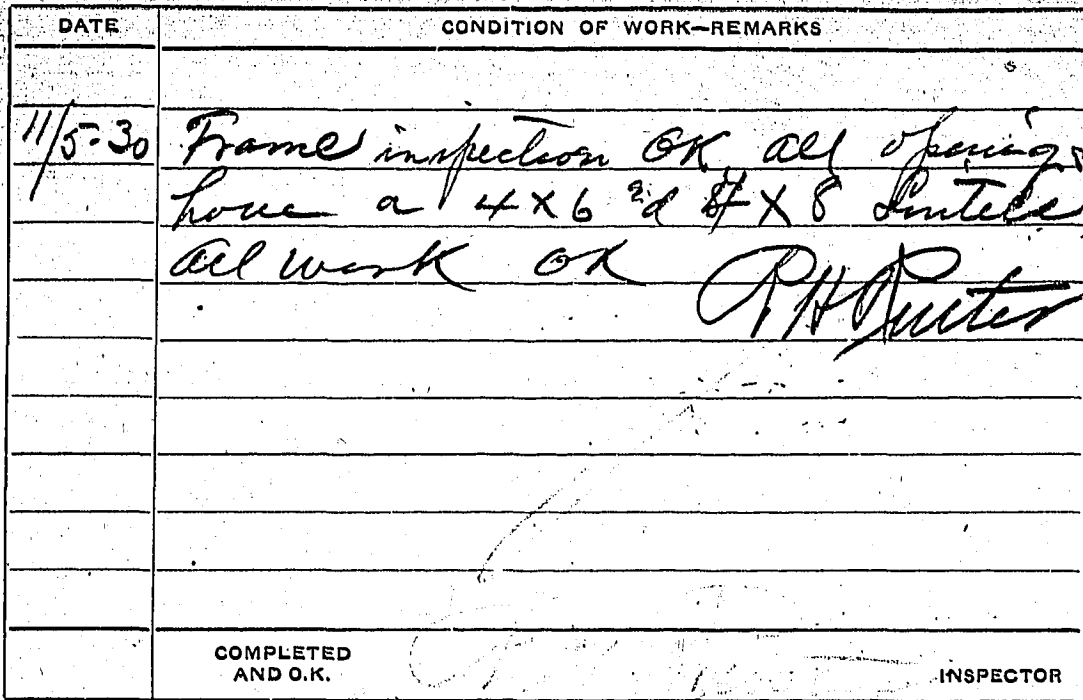 DATE CONDITION OF WORK—REMARKS
11/5-30 Frame inspection OK all openings
have a 4X6 & 4X8 Lintels
all work OK
COMPLETED
AND O.K. INSPECTOR